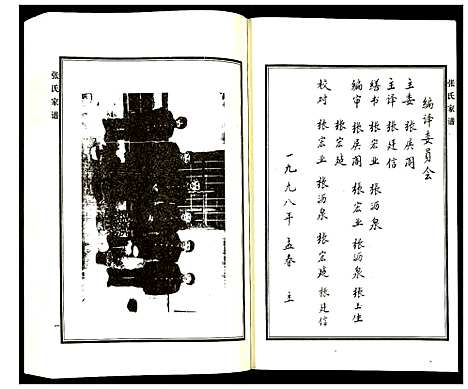 张氏家谱
编译委员会
主委 张庆阁
主译 张廷信
缮书 张宏业 张沥泉
编审 张庆阁 张宏业 张沥泉 张玉生
张宏廷
校对 张宏业 张沥泉 张宏廷 张廷信
一九九八年 孟春 立
张氏家谱